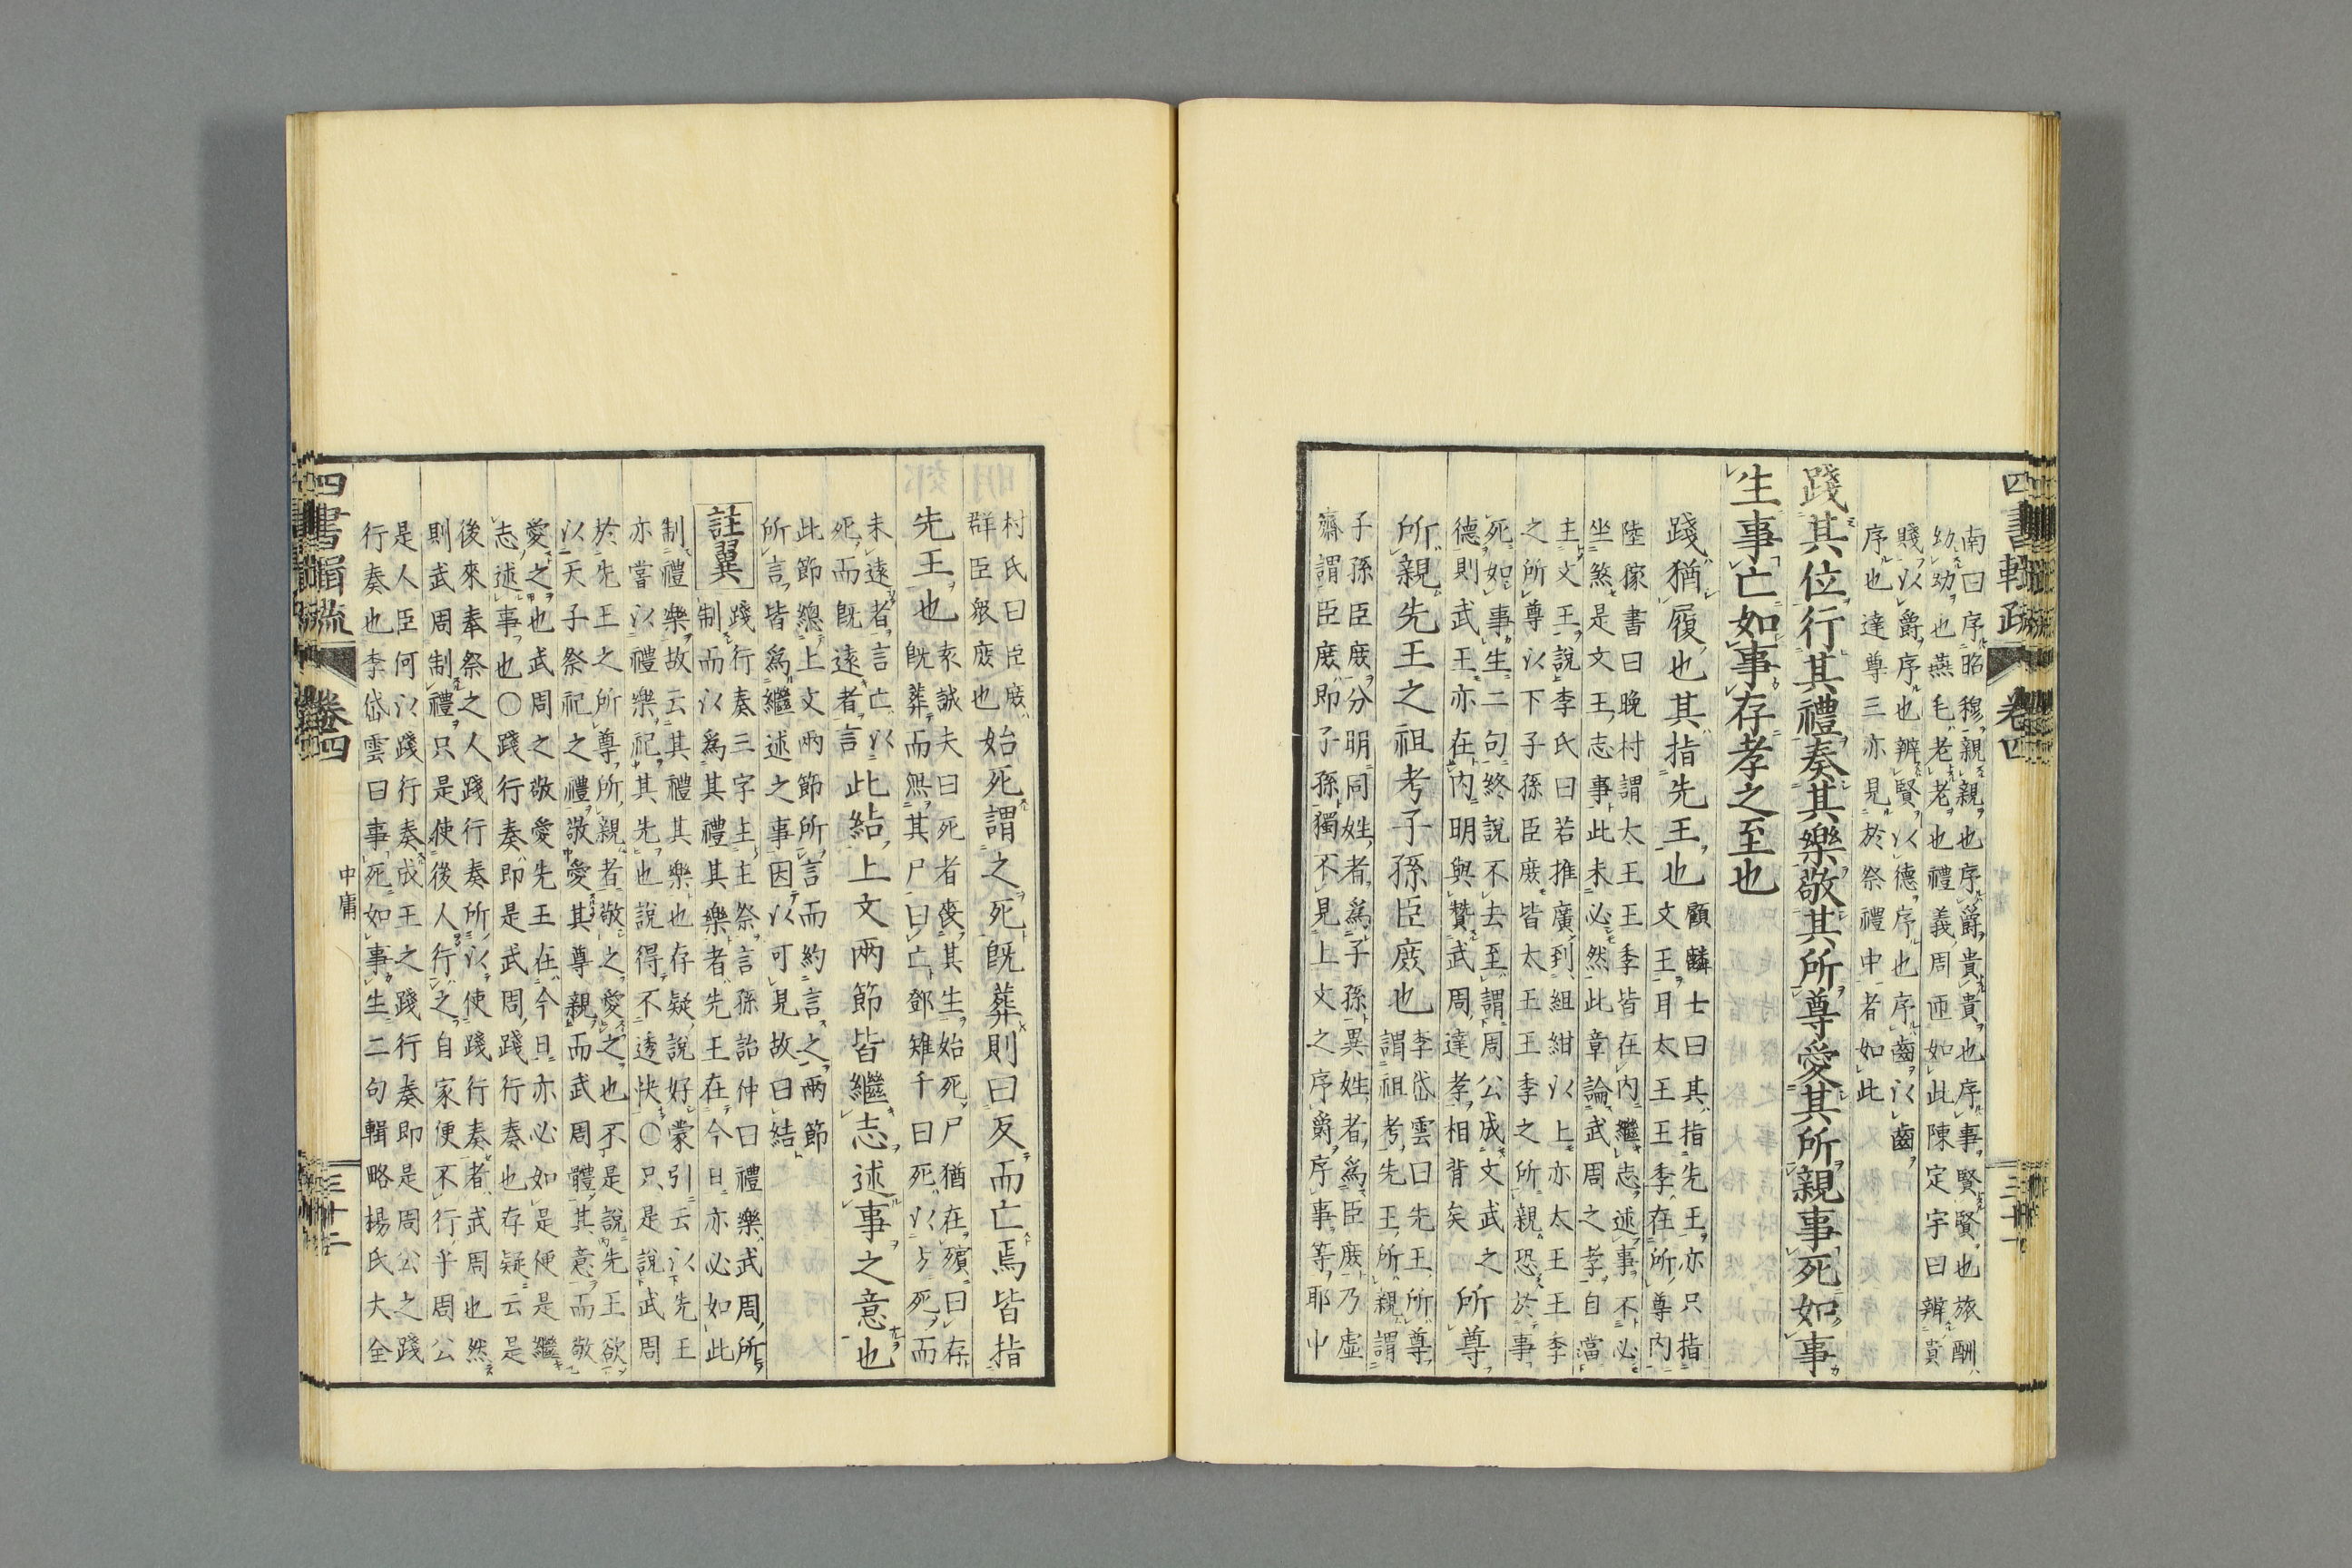 四書輯疏 卷四 三十一
南曰序昭穆親親也序爵貴貴也序事賢賢也旅酬
幼幼也燕毛老老也禮義周匝如此陳定宇曰辨貴
賤以爵序也辨賢以德序也序齒以齒
序也達尊三亦見於祭禮中者如此
踐其位行其禮奏其樂敬其所尊愛其所親事死如事
生事亡如事存孝之至也
踐猶履也其指先王也
顧麟士曰其指先王亦只指
文王耳太王王季在所尊內
陸稼書曰晚村謂太王王季皆在內繼志述事不必
坐煞是文王志事此未必然此章論武周之孝自當
主文王說李氏曰若推廣到組紺以上亦太王王季
之所尊以下子孫臣庶皆太王王季之所親恐於事
死如事生二句終說不去至謂周公成文武之
德則武王亦在內明與贊武周達孝相背矣
所尊
所親先王之祖考子孫臣庶也
李岱雲曰先王所尊
謂祖考先王所親謂
子孫臣庶分明同姓者為子孫異姓者為臣庶乃虛
齋謂臣庶即子孫獨不見上文之序爵序事等耶中
村氏曰臣庶
群臣眾庶也
始死謂之死既葬則曰反而亡焉皆指
先王也
袁誠夫曰死者喪其生始死尸猶在殯曰存
既葬而無其尸曰亡鄧雉千曰死以方死而
未遠者言亡以
死而既遠者言
此結上文兩節皆繼志述事之意也
此節總上文兩節所言而約言之兩節
所言皆為繼述之事因以可見故曰結
註翼
踐行奏三字主主祭言孫詒仲曰禮樂武周所
制而以為其禮其樂者先王在今日亦必如此
制禮樂故云其禮其樂也存疑說好蒙引云以先王
亦嘗以禮樂祀其先也說得不透快○只是說武周
於先王之所尊所親者敬之愛之也不是說先王欲
以天子祭祀之禮敬愛其尊親而武周體其意而敬
愛之也武周之敬愛先王在今日亦必如是便是繼
志述事也○踐行奏即是武周踐行奏也存疑云是
後來奉祭之人踐行奏所以使踐行奏者武周也然
則武周制禮只是使後人行之自家便不行乎周公
是人臣何以踐行奏成王之踐行奏即是周公之踐
行奏也李岱雲曰事死如事生二句輯略楊氏大全
四書輯疏 卷四 中庸 三十二